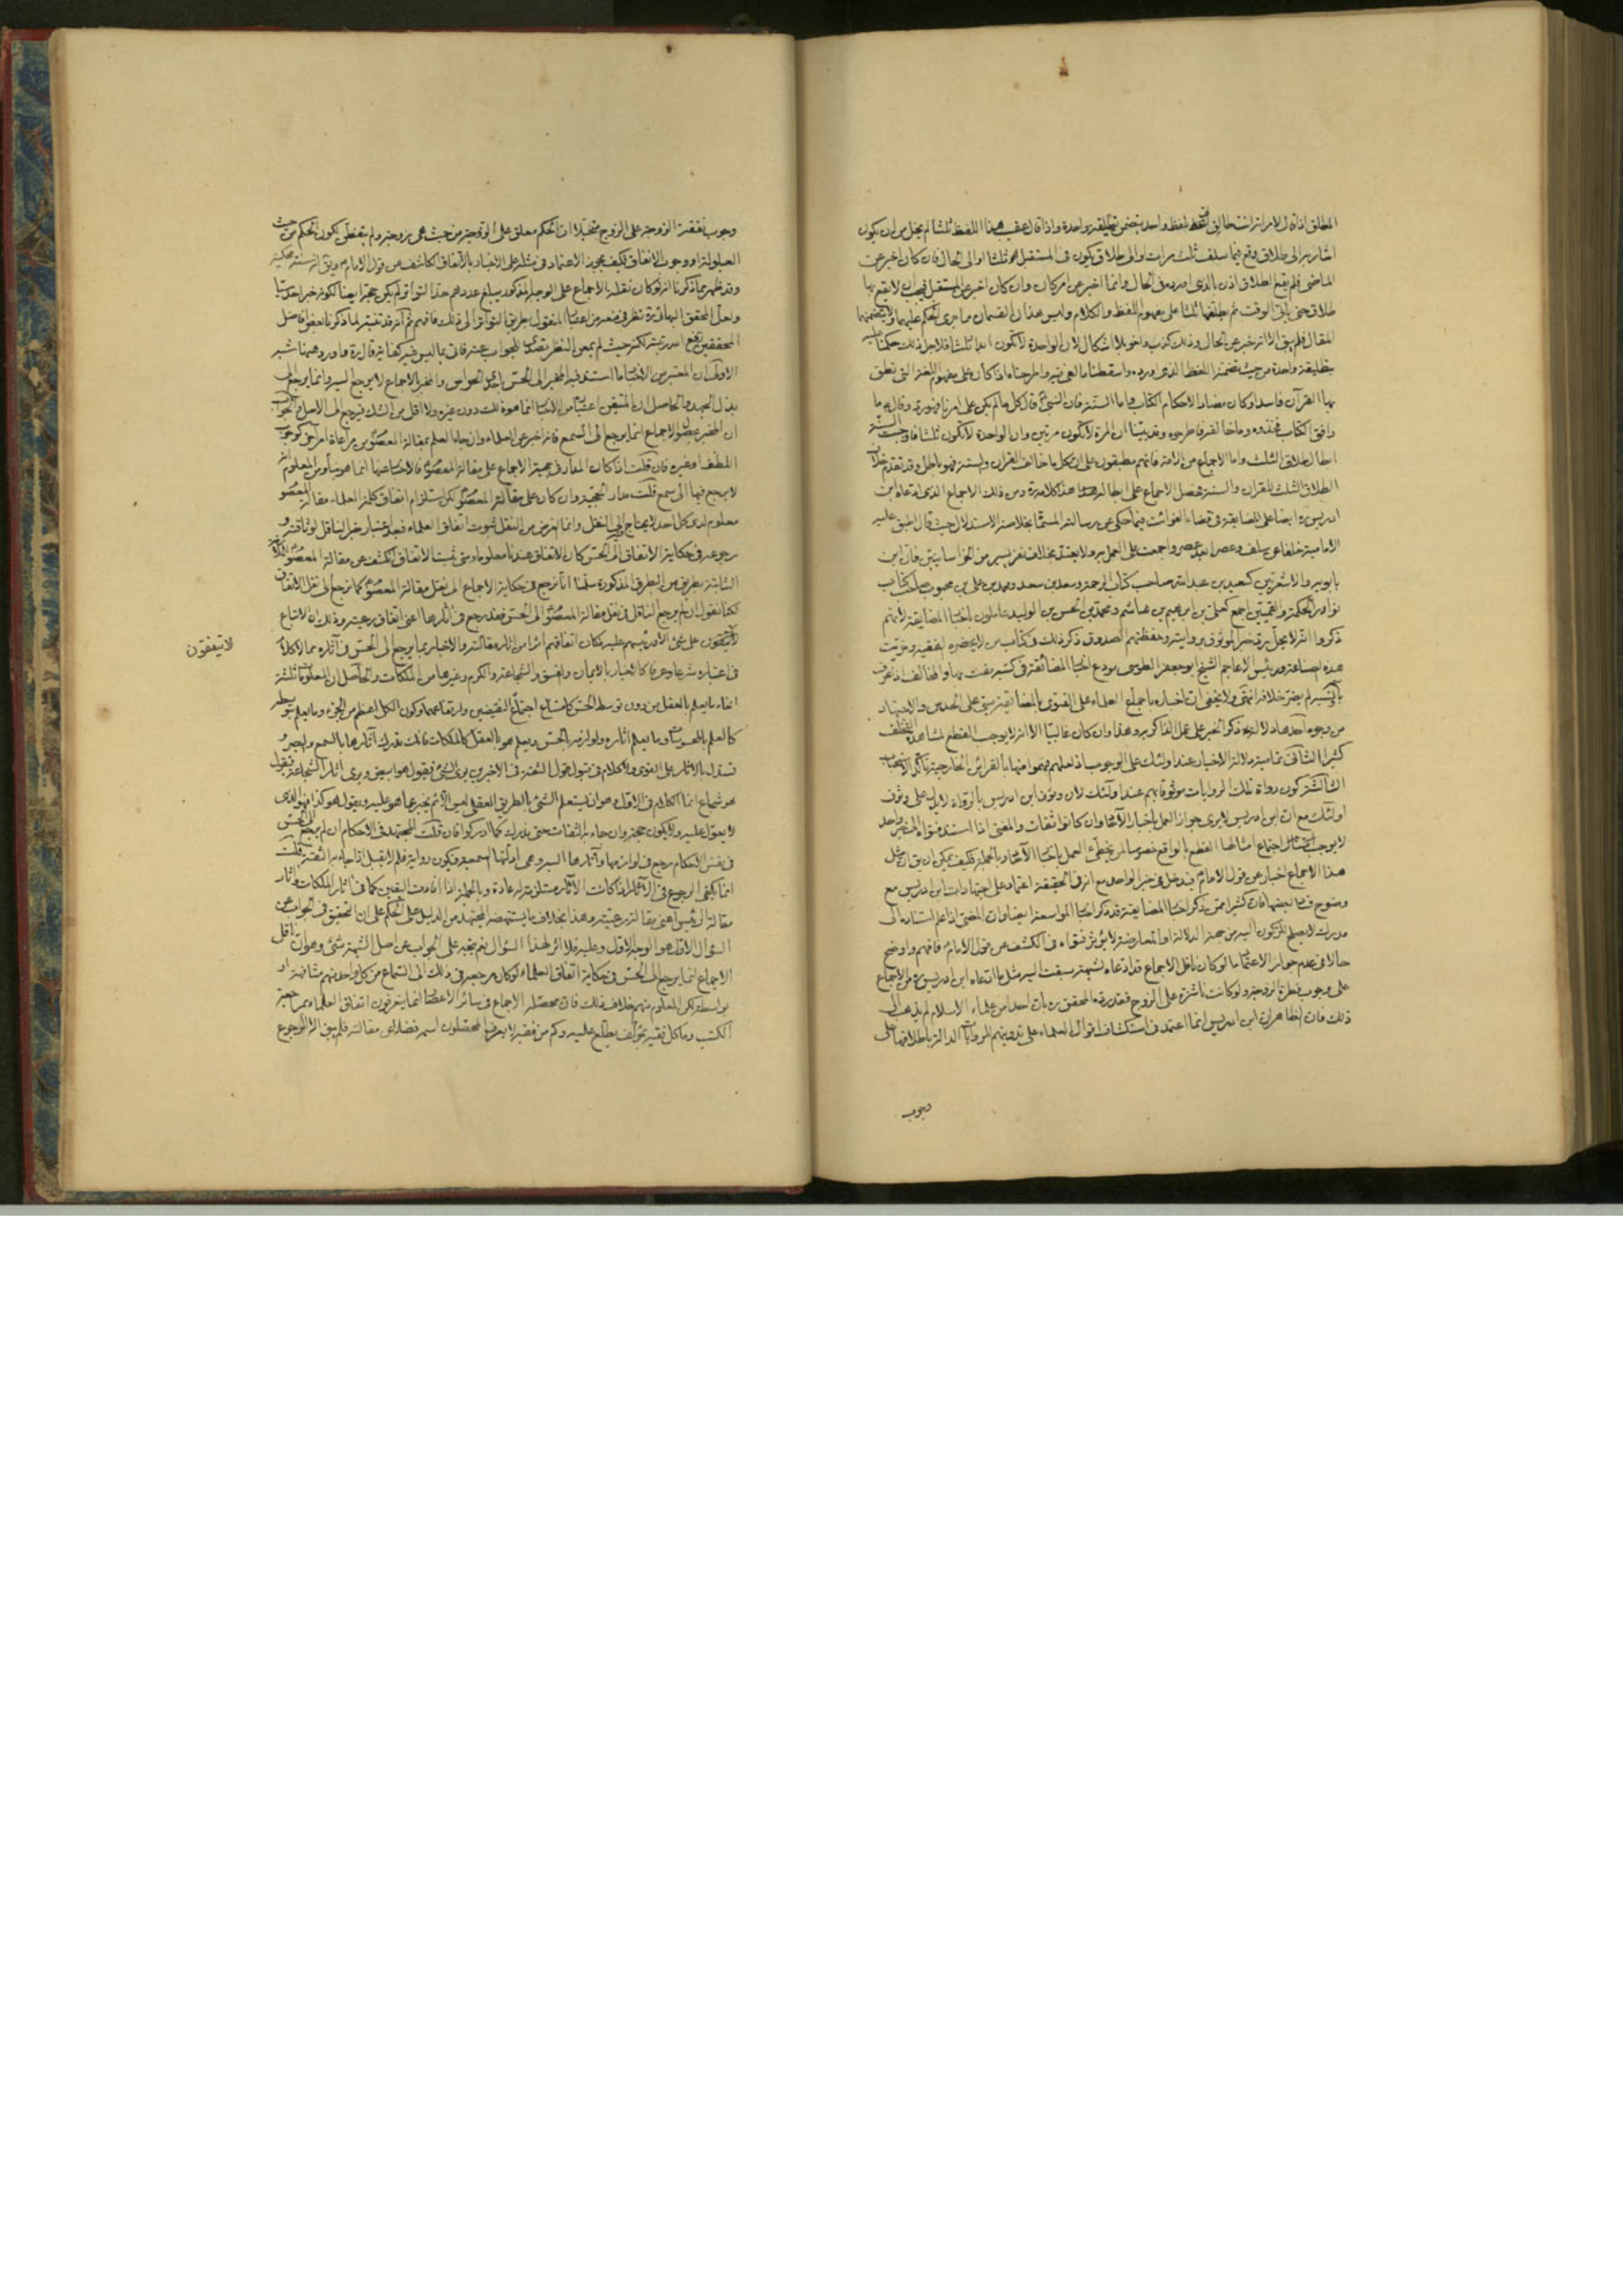 المطلق اذا قال لامراته انت طالق تلفظ بلفظ واحد يتضمن تطليقة واحدة واذا قال عقيب هذا اللفظ ثلثا لم يخل من ان يكون
اشار به الى طلاق وقع فيما سلف ثلث مرات او الى طلاق يكون في المستقبل ثلثا او الى الحال فان كان اخبر عن
الماضي فلم يقع الطلاق اذن بالذي اورده في الحال وانما اخبر عن امر كان وان كان اخبر عن المستقبل فيجب ان لا يقع بها
طلاق حتى ياتي الوقت ثم يطلقها ثلثا على مفهوم اللفظ والكلام وليس هذان القسمان مما جرى الحكم عليهما ولا تضمنهما
المقال فلم يبق الا انه خبر عن الحال وذلك كذب ولغو بلا اشكال لان الواحدة لا تكون ابدا ثلثا فلاجل ذلك حكمنا عليه
بتطليقة واحدة من حيث تضمنه اللفظ الذي اورده واسقطنا ما لغى فيه واطرحناه اذا كان على مفهوم اللغة التي نطق
بها القرآن فاسدا وكان مضادا لاحكام الكتاب واما السنة فان النبي قال كل ما لم يكن على امرنا فهو رد وقال ما
وافق الكتاب فخذوه وما خالفه فاطرحوه وقد بينا ان المرة لا تكون مرتين وان الواحدة لا تكون ثلثا فاوجب السنة
ابطال طلاق الثلث واما اجماع الامة فانهم مطبقون على ان كل ما خالف القران والسنة فهو باطل وقد تقدم خلاف
الطلاق الثلث للقران والسنة فحصل الاجماع على ابطاله هذا كلامه ومن ذلك الاجماع الذي ادعاه ابن
ادريس ره ايضا على المضايقة في قضاء الفوائت فيما حكي عن رسالته المسماة بخلاصة الاستدلال حيث قال اطبق عليه
الامامية خلفا عن سلف وعصرا بعد عصر واجمعت على العمل به ولا يعتد بخلاف نفر يسير من الخراسانيين فان ابن
بابويه والاشعريين كسعد بن عبد الله صاحب كتاب الرحمة وسعد بن سعد ومحمد بن علي بن محبوب صاحب كتاب
نوادر الحكمة والقميين اجمع كعلي بن ابراهيم بن هاشم ومحمد بن الحسن بن الوليد عاملون باخبار المضايقة لانهم
ذكروا انه لا يحل رد خبر الموثوق بروايته وحفظتهم الصدوق ذكر ذلك في كتاب من لا يحضره الفقيه وخريت
هذه الصناعة ورئيس الاعاجم الشيخ ابو جعفر الطوسي مودع اخبار المضايقة في كتبه مفت بها والمخالف اذا عرف
باسمه ونسبه لم يضر خلافه انتهى ولا يخفى ان اخباره باجماع العلماء على الفتوى بالمضايقة مبني على الحدس والاجتهاد
من وجوه احدها دلالة ذكر الخبر على عمل الذاكر به وهذا وان كان غالبيا الا انه لا يوجب القطع لمشاهدة التخلف
كثيرا الثاني تمامية دلالة الاخبار عند اولئك على الوجوب اذ لعلهم فهموا منها بالقرائن الخارجية تاكد الاستحباب
الثالث كون رواة تلك الروايات موثوقا بهم عند اولئك لان وثوق ابن ادريس بالرواة لا يدل على وثوق
اولئك مع ان ابن ادريس لا يرى جواز العمل باخبار الآحاد وان كانوا ثقات والمفتي اذا استند فتواه الى خبر واحد
لا يوجب اجتماع امثالها القطع بالواقع خصوصا لمن يخطئ العمل باخبار الآحاد وبالجملة فكيف يمكن ان يقال مثل
هذا الاجماع اخبار عن قول الامام فيدخل في خبر الواحد مع انه في الحقيقة اعتماد على اجتهادات ابن ادريس مع
وضوح فساد بعضها فان كثيرا ممن ذكر اخبار المضايقة قد ذكر اخبار المواسعة ايضا وان المفتي اذا علم استناده الى
مدرك لا يصلح للركون اليه من جهة الدلالة او المعارضة لا يؤثر فتواه في الكشف عن قول الامام فافهم واوضح
حالا في عدم جواز الاعتماد ما لو كان ناقل الاجماع قد ادعاه لشبهة سبقت اليه مثل ما ادعاه ابن ادريس من الاجماع
على وجوب فطرة الزوجة ولو كانت ناشزة على الزوج فقد رده المحقق ره بان احدا من علماء الاسلام لم يذهب الى
ذلك فان الظاهر ان ابن ادريس انما اعتمد في استكشاف اقوال العلماء على تدوينهم للروايات الدالة باطلاقها على
وجوب
وجوب نفقة الزوجة على الزوج متخيلا ان الحكم معلق على الزوجية من حيث هي زوجية ولم يتفطن لكون الحكم من حيث
العيلولة او وجوب الانفاق فكيف يجوز الاعتماد في مثله على الاخبار بالاتفاق الكاشف عن قول الامام ويق انه سنة محكية
وقد ظهر مما ذكرنا انه لو كان نقلة الاجماع على الوجه المذكور يبلغ عددهم حد التواتر لم يكن حجة ايضا
المحققين حيث لم يمعن النظر تصدى للجواب عنه
الاولى ان المعتبر من الاخبار ما استند فيه المخبر الى الحس باحدى الحواس والمخبر بالاجماع لا يرجع اليه وانما يرجع الى
بذل الجهد والحاصل ان المتيقن اعتباره من الاخبار انما هو ذلك دون غيره ولا اقل من الشك فيرجع الى الاصل والجواب
لا يرجع فيها الى سمع قلت مدار الحجية وان كان على مقالة المعصوم لكن استلزام اتفاق كلمة العلماء مقالة المعصوم
معلوم لدى كل احد لا يحتاج الى النقل وانما الغرض من النقل ثبوت اتفاق العلماء فبعد اعتبار خبر الناقل لوثاقته و
رجوعه في حكاية الاتفاق الى الحس كان الاتفاق عندنا معلوما ومتى ثبت الاتفاق انكشف عن مقالة المعصوم
الثابتة بطريق من الطرق المذكورة سلمنا انا نرجع في حكاية الاجماع الى نقل مقالة المعصوم كما نرجع الى نقل الاتفاق
لكنا نقول ان لم يرجع الناقل في نقل مقالة المعصوم الى الحس فقد رجع في آثارها اعني اتفاق رعيته وذلك ان الاتباع
لا يتفقون على شيء الا ورئيسهم عليه فكان اتفاقهم اثرا من آثار مقالته والاخبار بما يرجع الى الحس في آثاره مما لا كلام
لا يتفقون
في اعتباره شرعا وعرفا كالاخبار بالايمان والفسق والشجاعة والكرم وغيرها من الملكات والحاصل ان المعلومات ثلثة
انحاء ما يعلم بالعقل من دون توسط الحس كامتناع اجتماع النقيضين وارتفاعهما وكون الكل اعظم من الجزء وما يعلم بتوسطه
كالعلم بالمحسوسات وما يعلم آثاره ولوازمه بالحس ويعلم هو بالعقل كالملكات فانك تدرك آثارها بالسمع والبصر و
تستدل بالآثار على القوى ولا كلام في قبول قول الثقة في الاخيرين يرى الشيء فيقول هو ابيض ويرى آثار الشجاعة فيقول
هو شجاع انما الكلام في الاول وهو ان يستعلم الشيء بالطريق العقلي ثم يخبر عما هو عليه ويقول هو كذا فهو الذي
لا يعول عليه ولا يكون حجة وان جاء به الثقات حتى يدرك كما ادركوا فان قلت المجتهد في الاحكام ان لم يرجع الى الحس
في نفس الاحكام رجع في لوازمها وآثارها اليه وهي ادلتها السمعية فيكون رواية فلم لا يقبل اذا جاء به الثقة قلت
انما يكفي الرجوع في الآثار اذا كانت الآثار مستلزمة له عادة وبالجملة اذا افادت اليقين كما في آثار الملكات وآثار
مقالة الرئيس اعني مقالة رعيته وهذا بخلاف ما يستنهضه المجتهد من الدليل على الحكم على ان التحقيق في الجواب عن
السؤال الاول هو الوجه الاول وعليه فلا اثر لهذا السؤال نعم يتجه على الجواب عن اصل الشبهة شيء وهو ان ناقل
الاجماع انما يرجع الى الحس في حكاية اتفاق العلماء لو كان مرجعه في ذلك الى السماع من كل واحد منهم مشافهة او
بواسطة لكن المعلوم منهم خلاف ذلك فان محصلة الاجماع في سائر الاعصار انما يتعرفون اتفاق العلماء بمراجعة
الكتب وما كل فقيه بمؤلف يطلع عليه وكم من فقيه لا يعرف المحصلون اسمه فضلا عن مقالته فلم يبق الا الرجوع